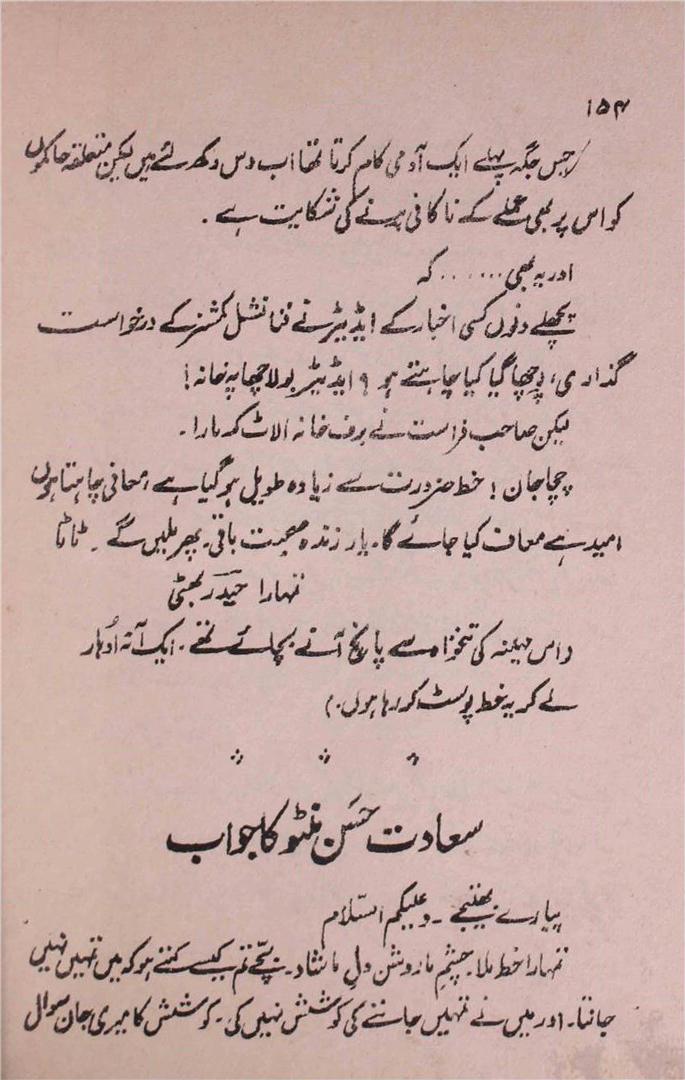 ۱۵۴
جس جگہ پہلے ایک آدمی کام کرتا تھا اب دس رکھ لئے ہیں لیکن متعلقہ حاکموں
کو اس پر بھی عملے کے ناکافی ہونے کی شکایت ہے ۔
اور یہ بھی ...... کہ
پچھلے دنوں کسی اخبار کے ایڈیٹر نے فنانشل کمشنر کے درخواست
گذاری، پوچھا گیا کیا چاہتے ہو ؟ ایڈیٹر بولا چھاپہ خانہ !
لیکن صاحب فراست نے برف خانہ الاٹ کر مارا ۔
چچا جان ! خط ضرورت سے زیادہ طویل ہو گیا ہے، معافی چاہتا ہوں
امید ہے معاف کیا جائے گا۔ یار زندہ صحبت باقی۔ پھر ملیں گے ۔ ٹاٹا
تمہارا حیدر بھٹی
(اس مہینہ کی تنخواہ سے پانچ آنے بچائے تھے ۔ ایک آنہ اُدھار
لے کر یہ خط پوسٹ کر رہا ہوں ۔)
سعادت حسن منٹو کا جواب
پیارے بھتیجے ۔ وعلیکم السّلام
تمہارا خط ملا۔ چشمِ ما روشن دلِ ما شاد۔ بچّے تم کیسے کہتے ہو کہ میں تمہیں نہیں
جانتا ۔ اور میں نے تمہیں جاننے کی کوشش نہیں کی ۔ کوشش کا میری جان سوال